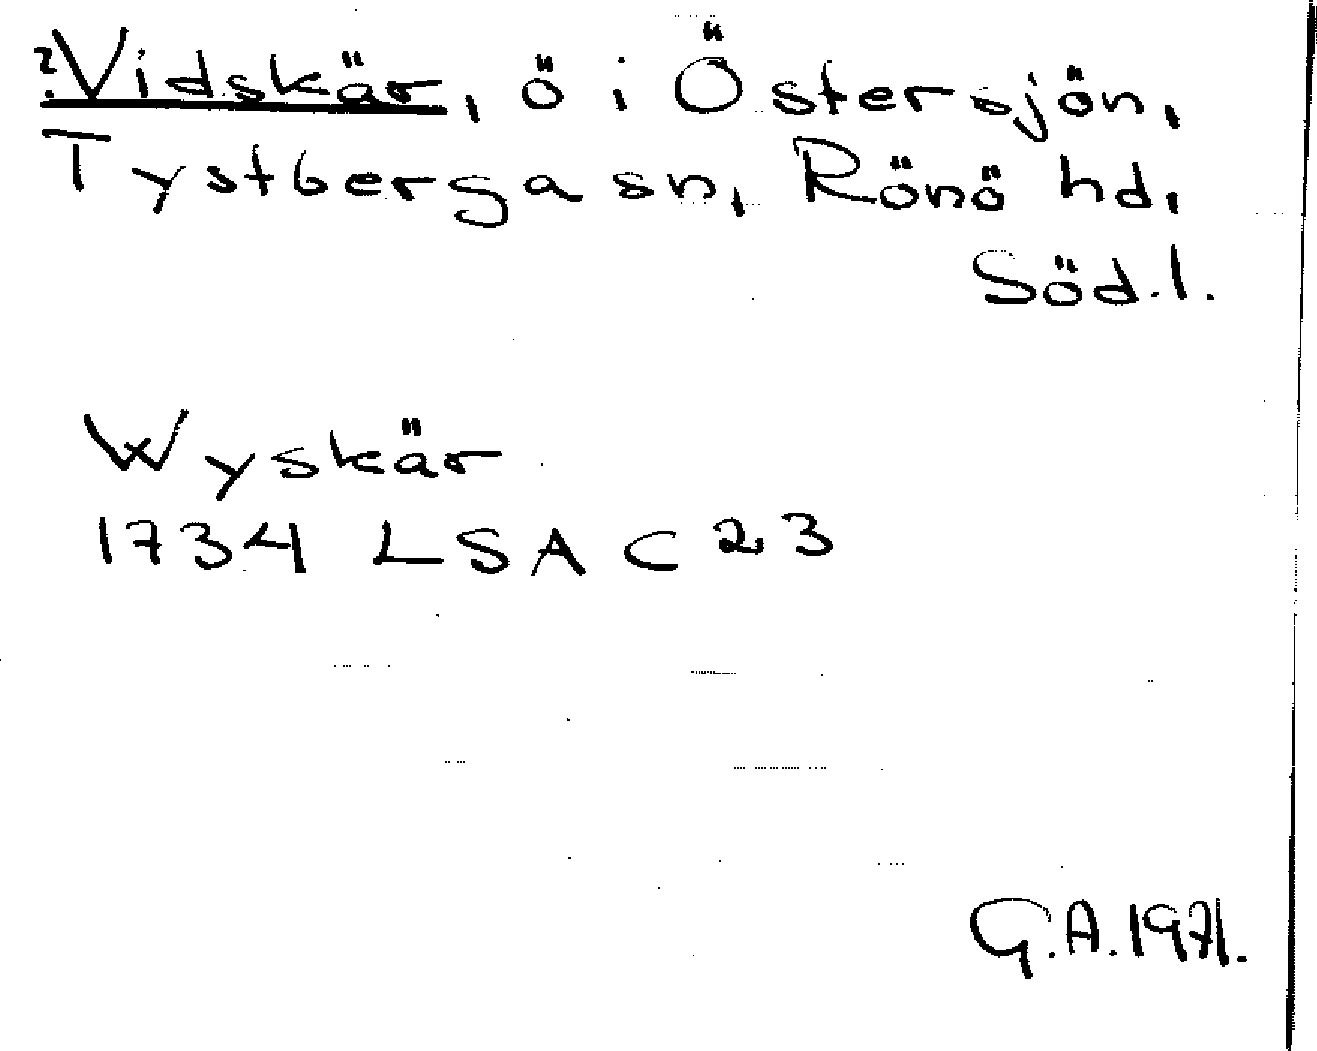 ?Vidskär, ö i Östersjön,
Tystberga sn, Rönö hd,
Söd.l.
Wyskär
1734 LSA C 23
G.A. 1971.